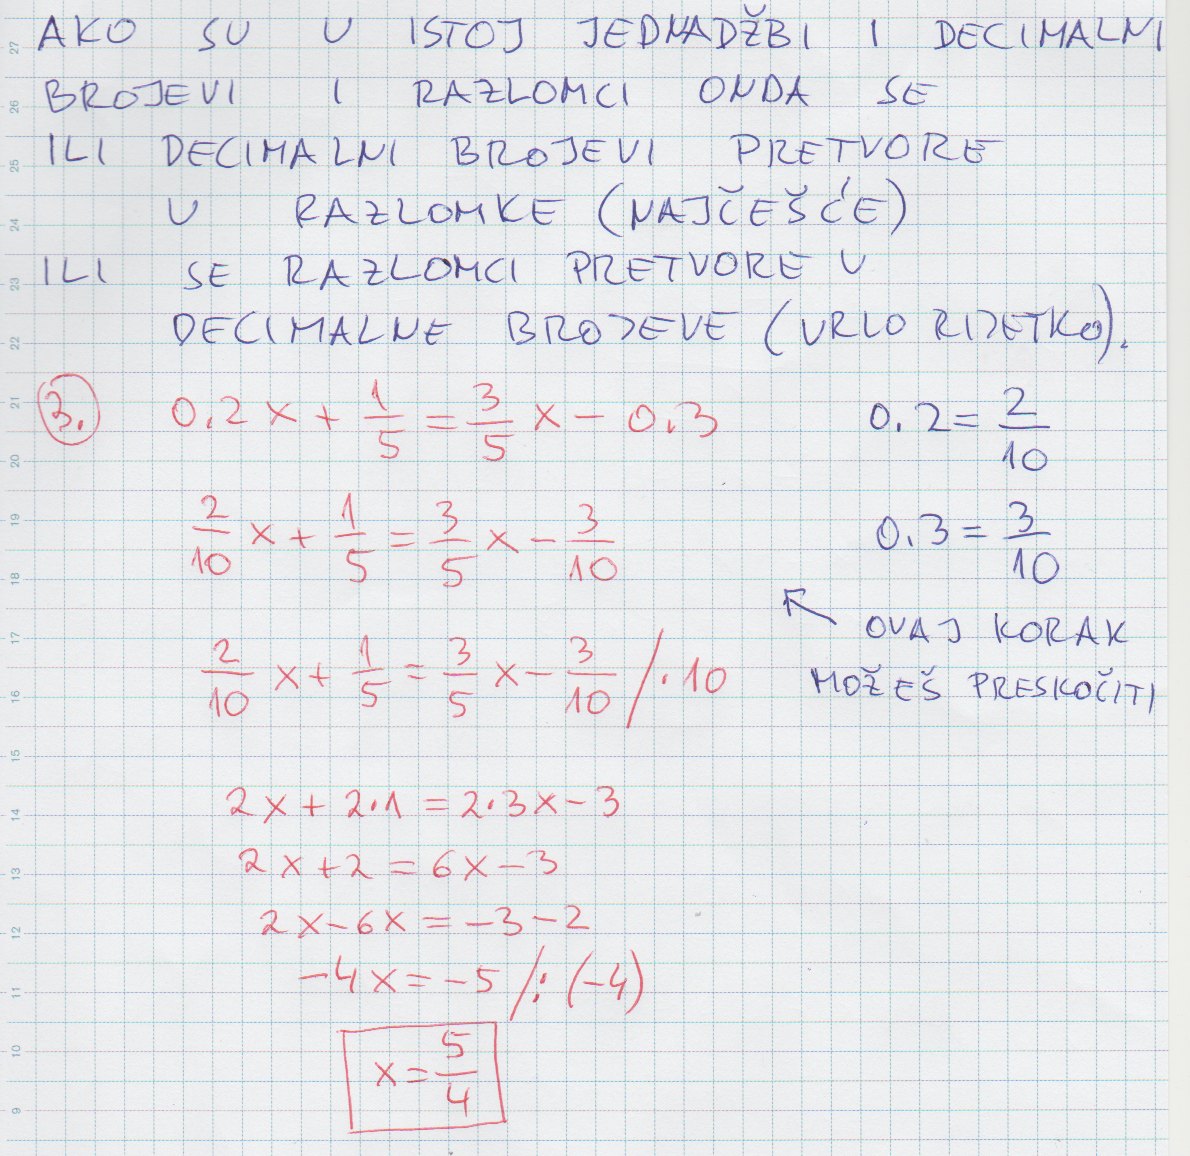 AKO SU U ISTOJ JEDNADŽBI I DECIMALNI
BROJEVI I RAZLOMCI ONDA SE
ILI DECIMALNI BROJEVI PRETVORE
U RAZLOMKE (NAJČEŠĆE)
ILI SE RAZLOMCI PRETVORE U
DECIMALNE BROJEVE (VRLO RIJETKO).
3. 0.2x + 1/5 = 3/5 x - 0.3
0.2 = 2/10
2/10 x + 1/5 = 3/5 x - 3/10
0.3 = 3/10
OVAJ KORAK
MOŽEŠ PRESKOČITI
2/10 x + 1/5 = 3/5 x - 3/10 / · 10
2x + 2·1 = 2·3x - 3
2x + 2 = 6x - 3
2x - 6x = -3 - 2
-4x = -5 / : (-4)
x = 5/4
27
26
25
24
23
22
21
20
19
18
17
16
15
14
13
12
11
10
9